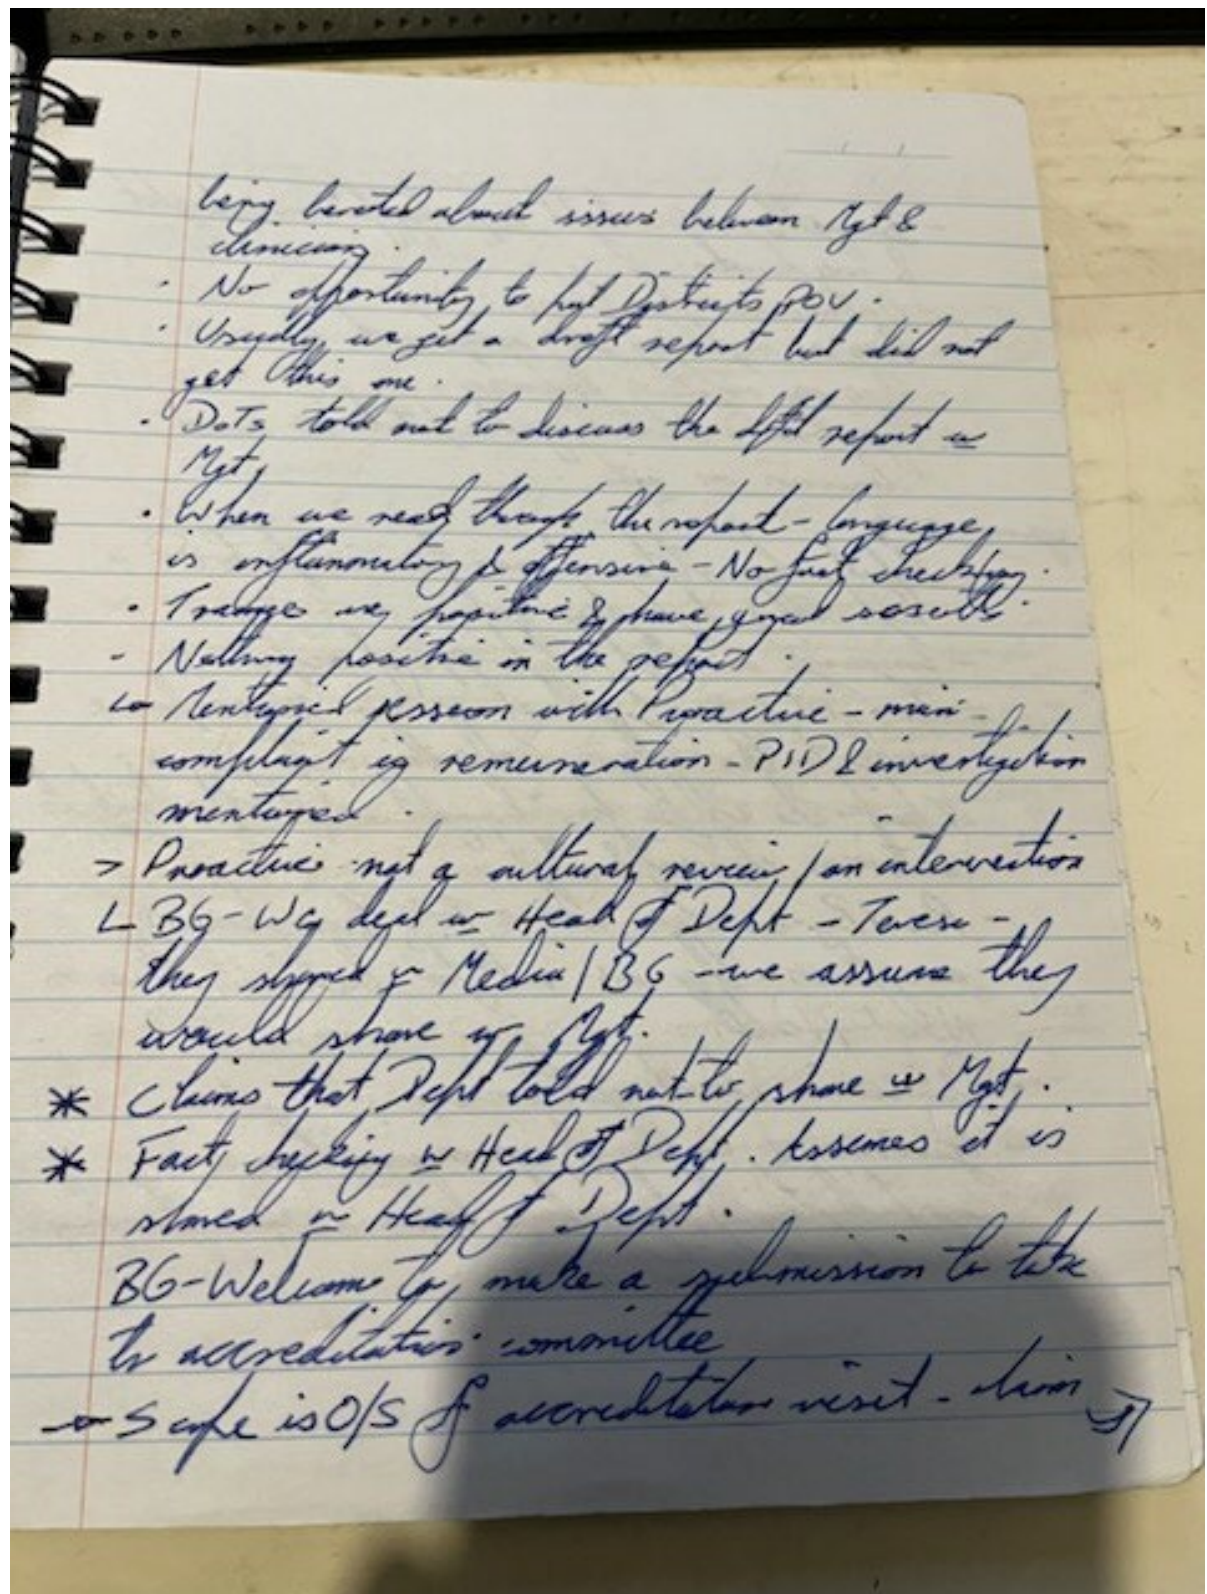 being berated about issues between Mgt &
clinicians.
· No opportunity to put Districts POV.
· Usually we get a draft report but did not
get this one.
· DoTs told not to discuss the report w
Mgt.
· When we read through the report - language
is inflammatory & offensive - No fact checking.
· positive & have good results.
- Nothing positive in the report.
Mentioned session with Proactive - main
complaint remuneration - PID & investigation
mentioned.
> Proactive not a cultural review / an intervention
BG - We deal w Head of Dept - -
they shared w Media / BG - we assume they
would share w Mgt.
* Claims that Dept told not to share w Mgt.
* Fact checking w Head of Dept. Assumes it is
shared w Head of Dept.
BG - Welcome to make a submission to take
to accreditation committee
Scope is O/S of accreditation visit - claim